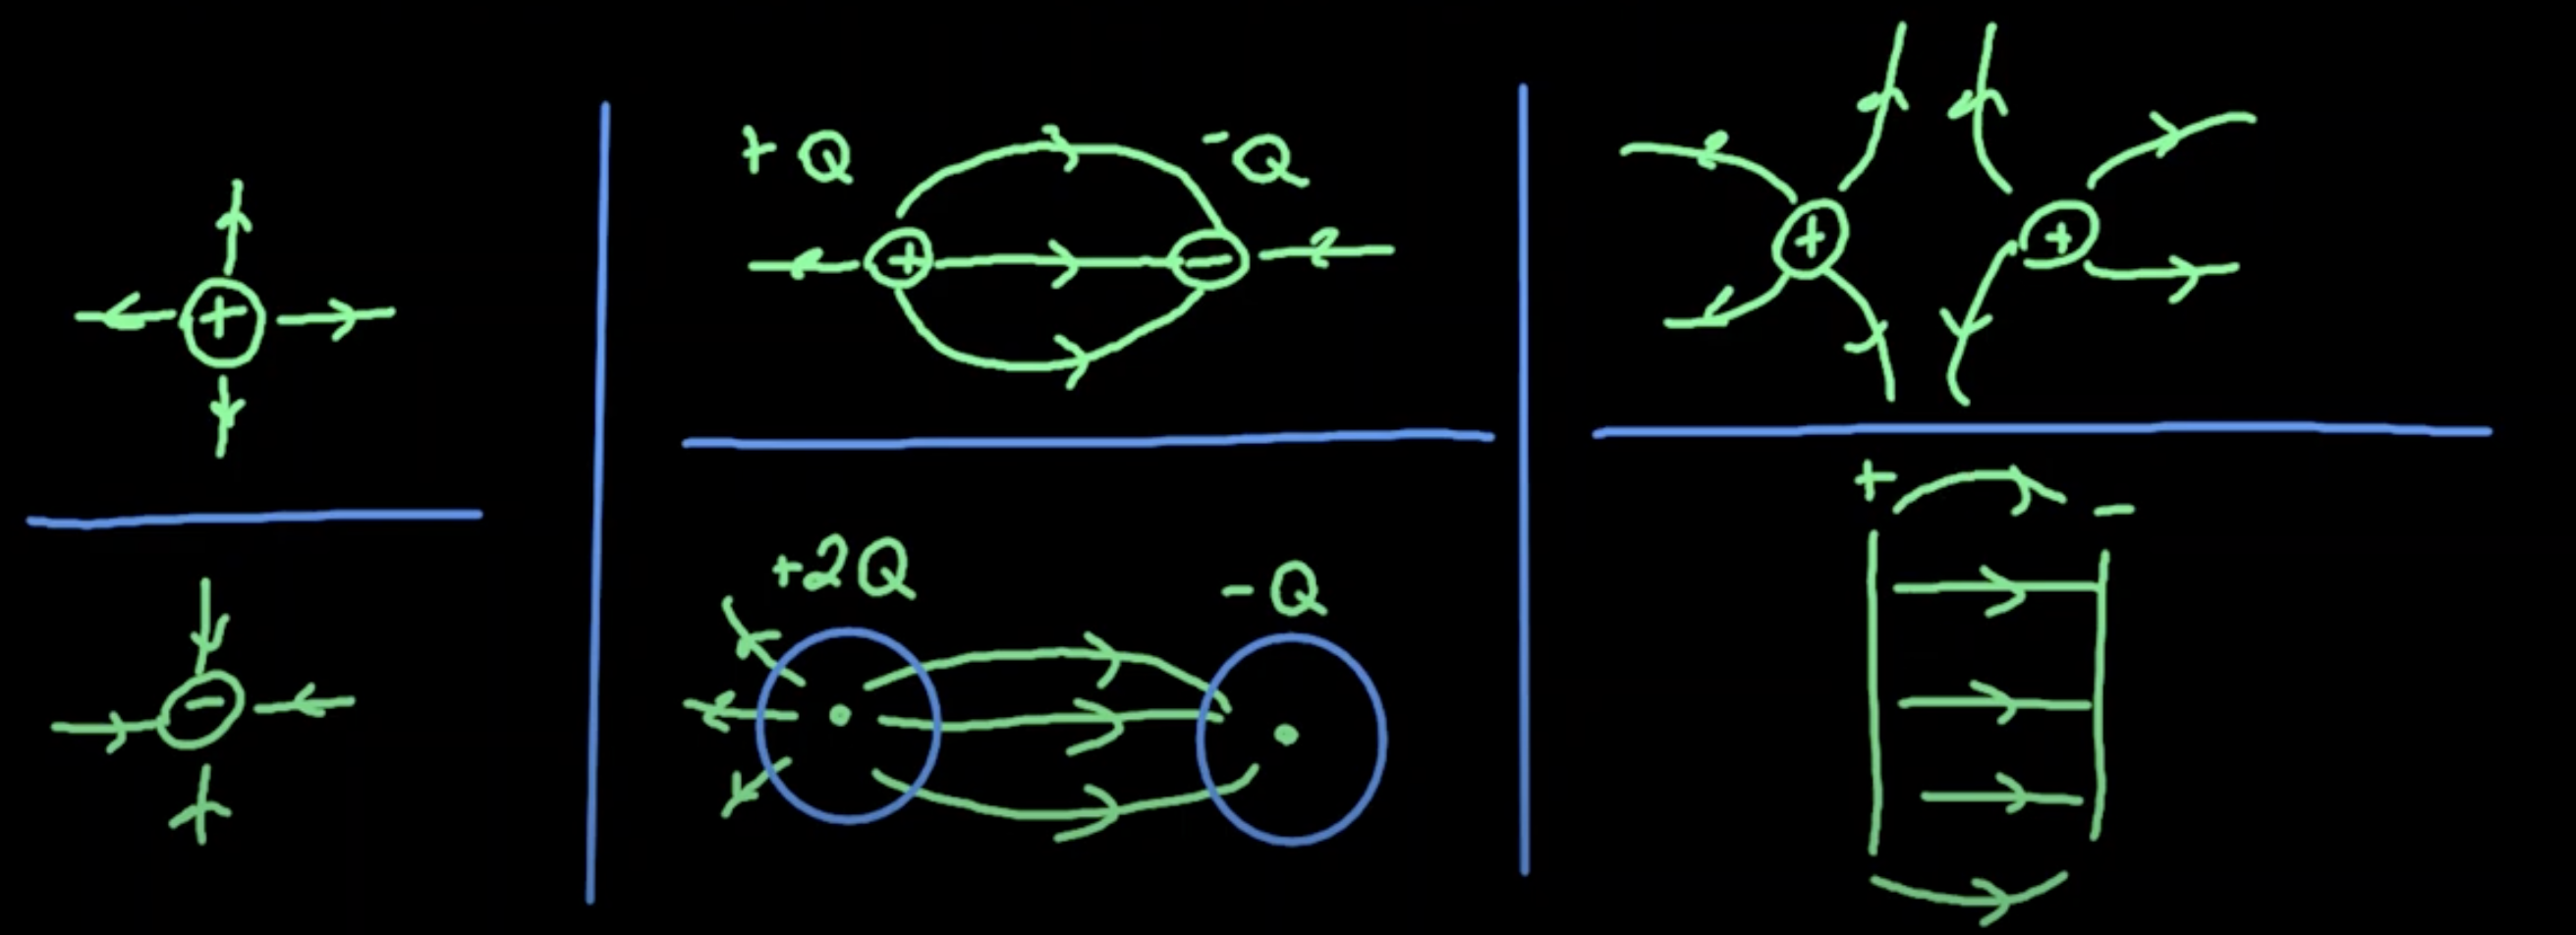 +
-
+Q
-Q
+
-
+2Q
-Q
+
+
+
-